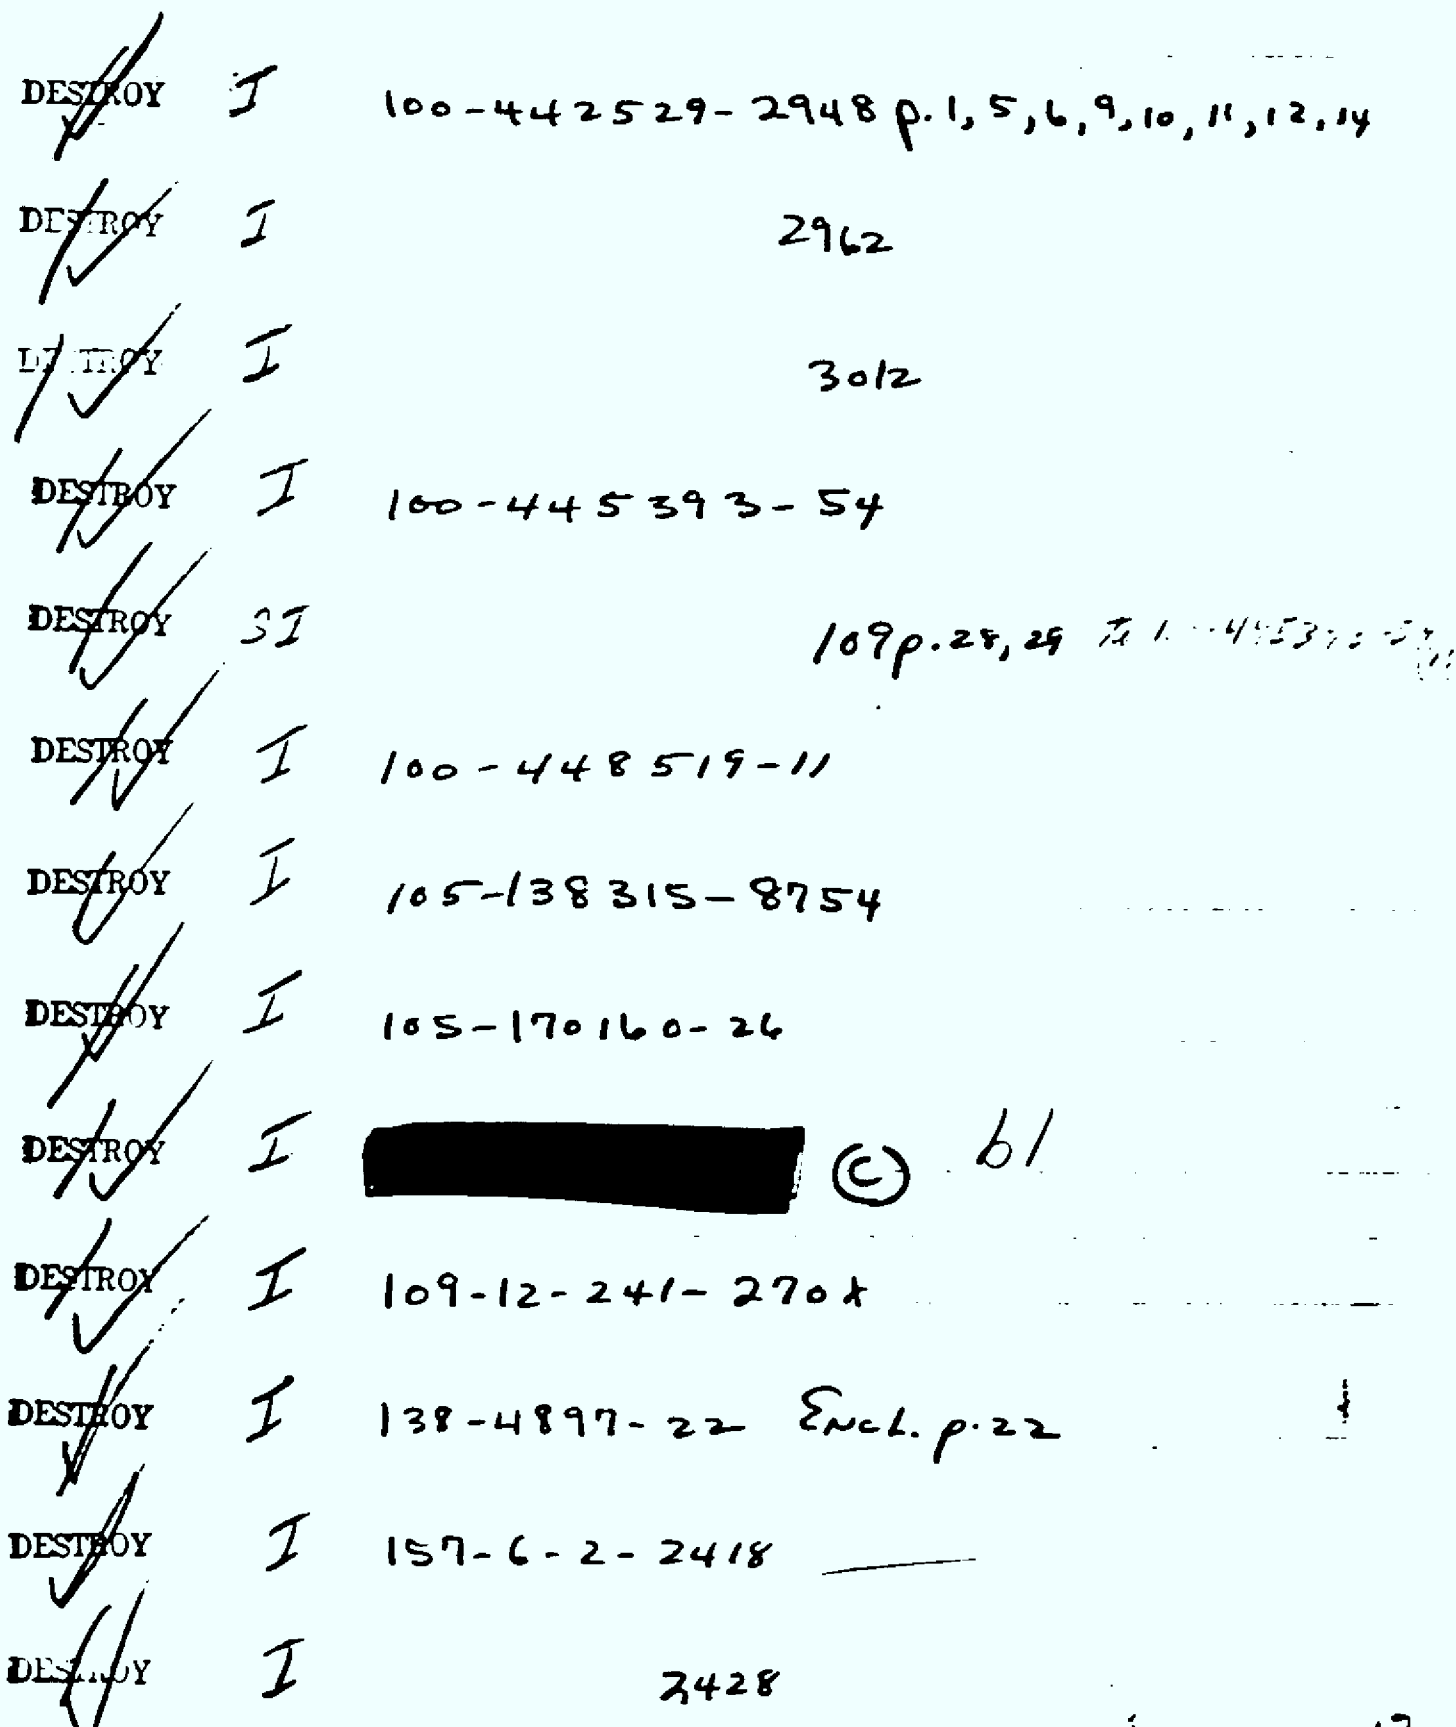 DESTROY I 100-442529-2948 p. 1, 5, 6, 9, 10, 11, 12, 14
DESTROY I 2962
DESTROY I 3012
DESTROY I 100-445393-54
DESTROY SI 109 p. 28, 29
DESTROY I 100-448519-11
DESTROY I 105-138315-8754
DESTROY I 105-170160-26
DESTROY I © b1
DESTROY I 109-12-241-270X
DESTROY I 138-4897-22 Encl. p. 22
DESTROY I 157-6-2-2418
DESTROY I 2428